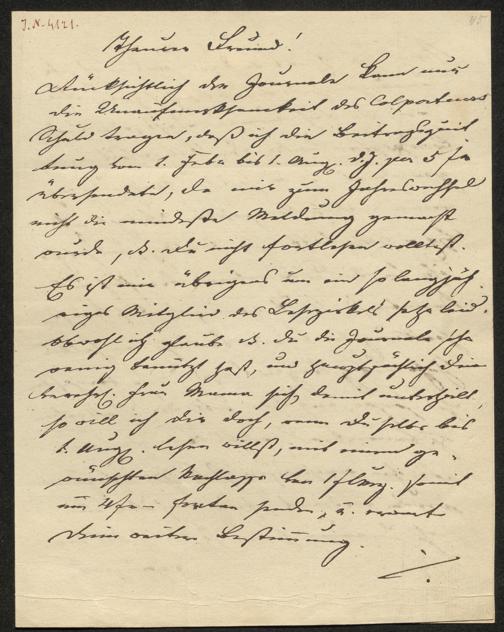 J.N. 4121.
45
Theurer Freund!
Rücksichtlich der Journale kann nur
die Unaufmerksamkeit des Colporteurs
Schuld tragen, daß ich die Beitragsquit
tung vom 1. Feber bis 1. Aug. d.J. per 5 f
übersendete, da mir zum Jahreswechsel
nicht die mindeste Meldung gemacht
wurde, d. Du nicht fortlesen wolltest.
Es ist mir übrigens um ein so langjäh
riges Mitglied des Lesezirkels sehr leid.
Obwohl ich glaube d. du die Journale sehr
wenig benützt hast, und hauptsächlich Deine
verehrte Frau Mama sich damit unterhielt,
so will ich Dir doch, wenn Du selbe bis
1. Aug. lesen willst, mit einem ge-
wünschten Nachlasse von 1 f
um 4 f fortan senden, u. erwarte
Deine weitere Bestimmung.